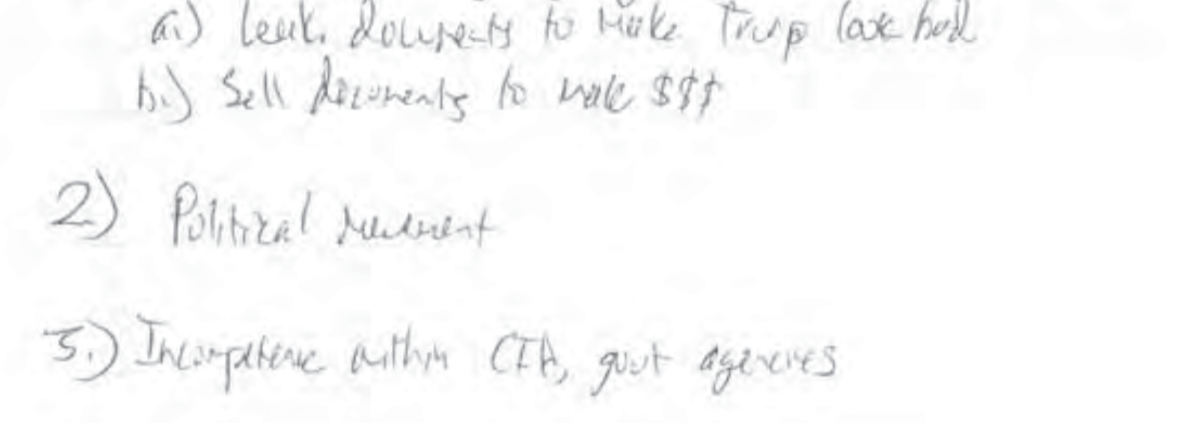 a.) Leak documents to make Trump look bad
b.) Sell documents to make $$$
2) Political movement
3.) Incompetence within CIA, govt agencies